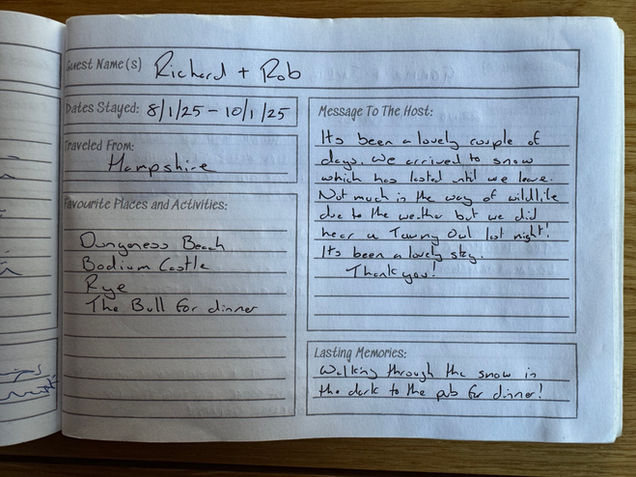 Guest Name(s) Richard + Rob
Dates Stayed: 8/1/25 - 10/1/25
Traveled From:
Hampshire
Favourite Places and Activities:
Dungeness Beach
Bodium Castle
Rye
The Bull for dinner
Message To The Host:
Its been a lovely couple of
days. We arrived to snow
which has lasted until we leave.
Not much in the way of wildlife
due to the weather but we did
hear a Tawny Owl last night!
Its been a lovely stay.
Thank you!
Lasting Memories:
Walking through the snow in
the dark to the pub for dinner!